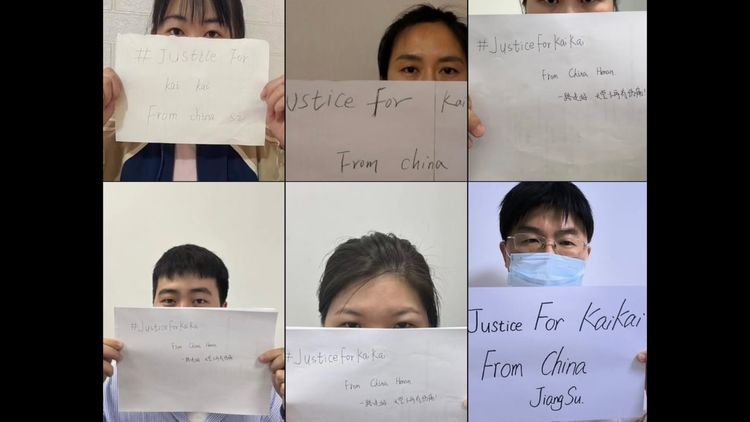 # Justice For
kai kai
From china
ustice For Kai
From china
#Justice for Kai Kai
From China Henan
一路走好 天堂不再有伤痛!
#Justice for Kai Kai
From China Henan
一路走好 天堂不再有伤痛
#Justice for Kai Kai
From China Henan
一路走好 天堂不再有伤痛!
Justice For KaiKai
From China
JiangSu.